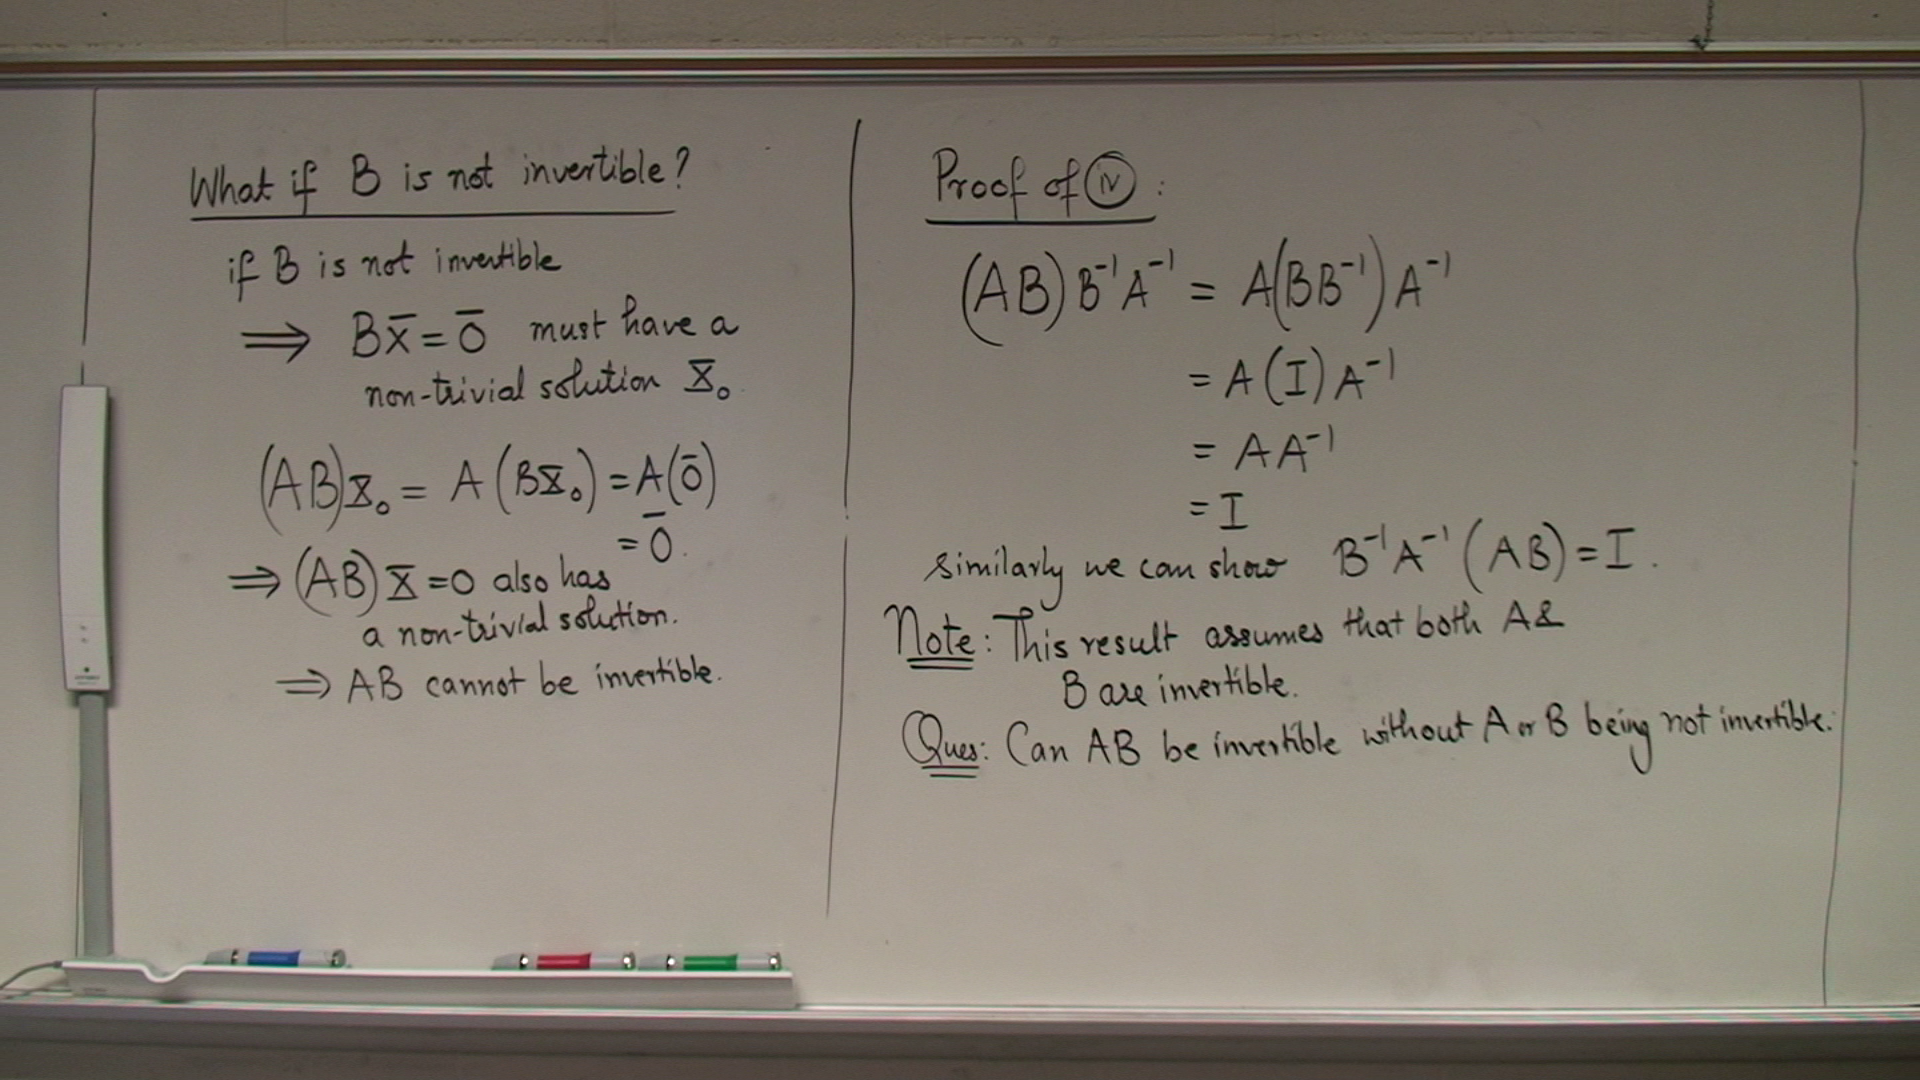 What if B is not invertible?
if B is not invertible
⟹ Bx̄ = 0̄ must have a
non-trivial solution x̄₀.
(AB)x̄₀ = A(Bx̄₀) = A(0̄)
= 0̄.
⟹ (AB)x̄ = 0 also has
a non-trivial solution.
⟹ AB cannot be invertible.
Proof of (iv):
(AB)B⁻¹A⁻¹ = A(BB⁻¹)A⁻¹
= A(I)A⁻¹
= AA⁻¹
= I
Similarly we can show B⁻¹A⁻¹(AB) = I.
Note: This result assumes that both A &
B are invertible.
Ques: Can AB be invertible without A or B being not invertible.